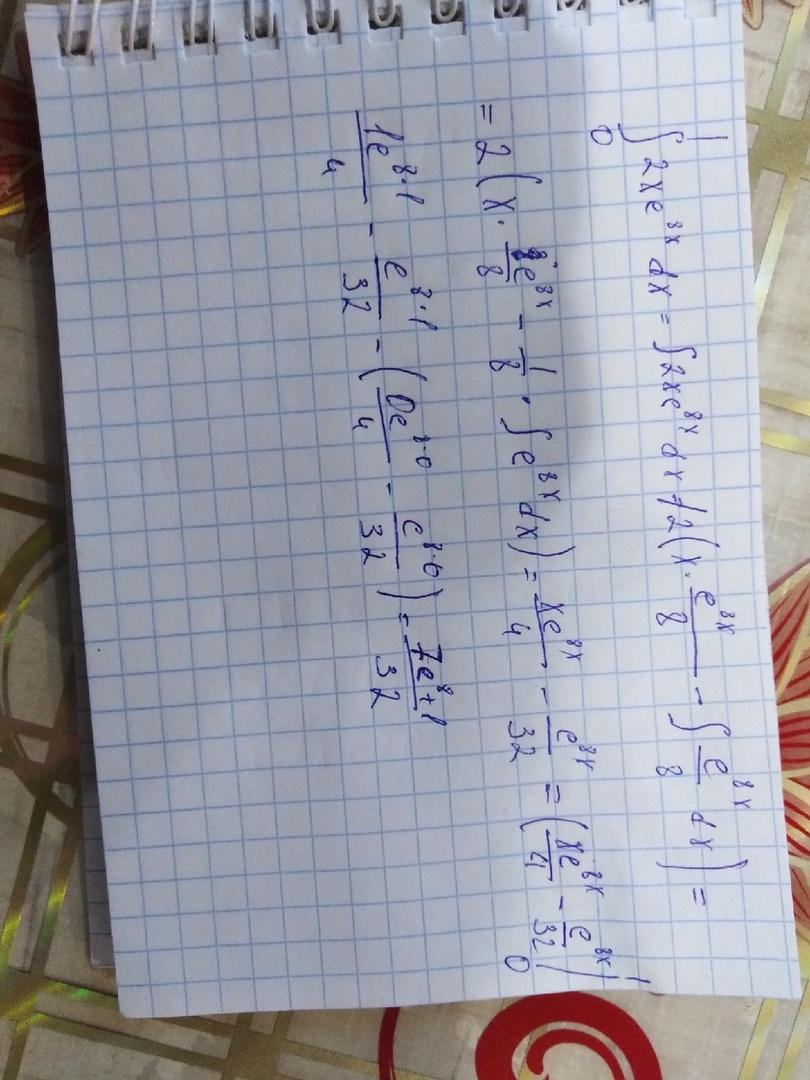 ∫₀¹ 2xe^{8x} dx = ∫ 2xe^{8x} dx = 2(x · e^{8x}/8 - ∫ e^{8x}/8 dx) =
= 2(x · e^{8x}/8 - 1/8 · ∫ e^{8x} dx) = xe^{8x}/4 - e^{8x}/32 = (xe^{8x}/4 - e^{8x}/32)|₀¹
1e^{8·1}/4 - e^{8·1}/32 - (0e^{8·0}/4 - e^{8·0}/32) = 7e^8+1/32